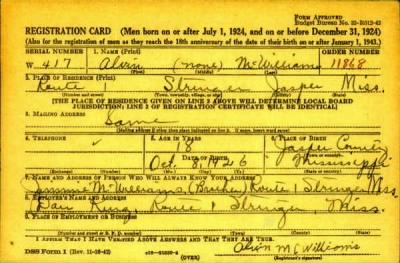 FORM APPROVED
Budget Bureau No. 33-R012-43
REGISTRATION CARD (Men born on or after July 1, 1924, and on or before December 31, 1924)
(Also for the registration of men as they reach the 18th anniversary of the date of their birth on or after January 1, 1943.)
SERIAL NUMBER 1. NAME (Print) ORDER NUMBER
W 417 Alvin (none) McWilliams 11868
(First) (Middle) (Last)
2. PLACE OF RESIDENCE (Print)
Route Stringer Jasper Miss.
(Number and street) (Town, township, village, or city) (County) (State)
[THE PLACE OF RESIDENCE GIVEN ON LINE 2 ABOVE WILL DETERMINE LOCAL BOARD
JURISDICTION; LINE 2 OF REGISTRATION CERTIFICATE WILL BE IDENTICAL]
3. MAILING ADDRESS
Same
[Mailing address if other than place indicated on line 2. If same, insert word same]
4. TELEPHONE 5. AGE IN YEARS 6. PLACE OF BIRTH
18 Jasper County
DATE OF BIRTH
Oct. 8, 1926 Mississippi
7. NAME AND ADDRESS OF PERSON WHO WILL ALWAYS KNOW YOUR ADDRESS
Jimmie McWilliams, (Brother) Route 1 Stringer Miss.
8. EMPLOYER'S NAME AND ADDRESS
Dan King Route 1 Stringer Miss.
9. PLACE OF EMPLOYMENT OR BUSINESS
I AFFIRM THAT I HAVE VERIFIED ABOVE ANSWERS AND THAT THEY ARE TRUE.
DSS Form 1 (Rev. 11-16-42) (OVER) Alvin McWilliams